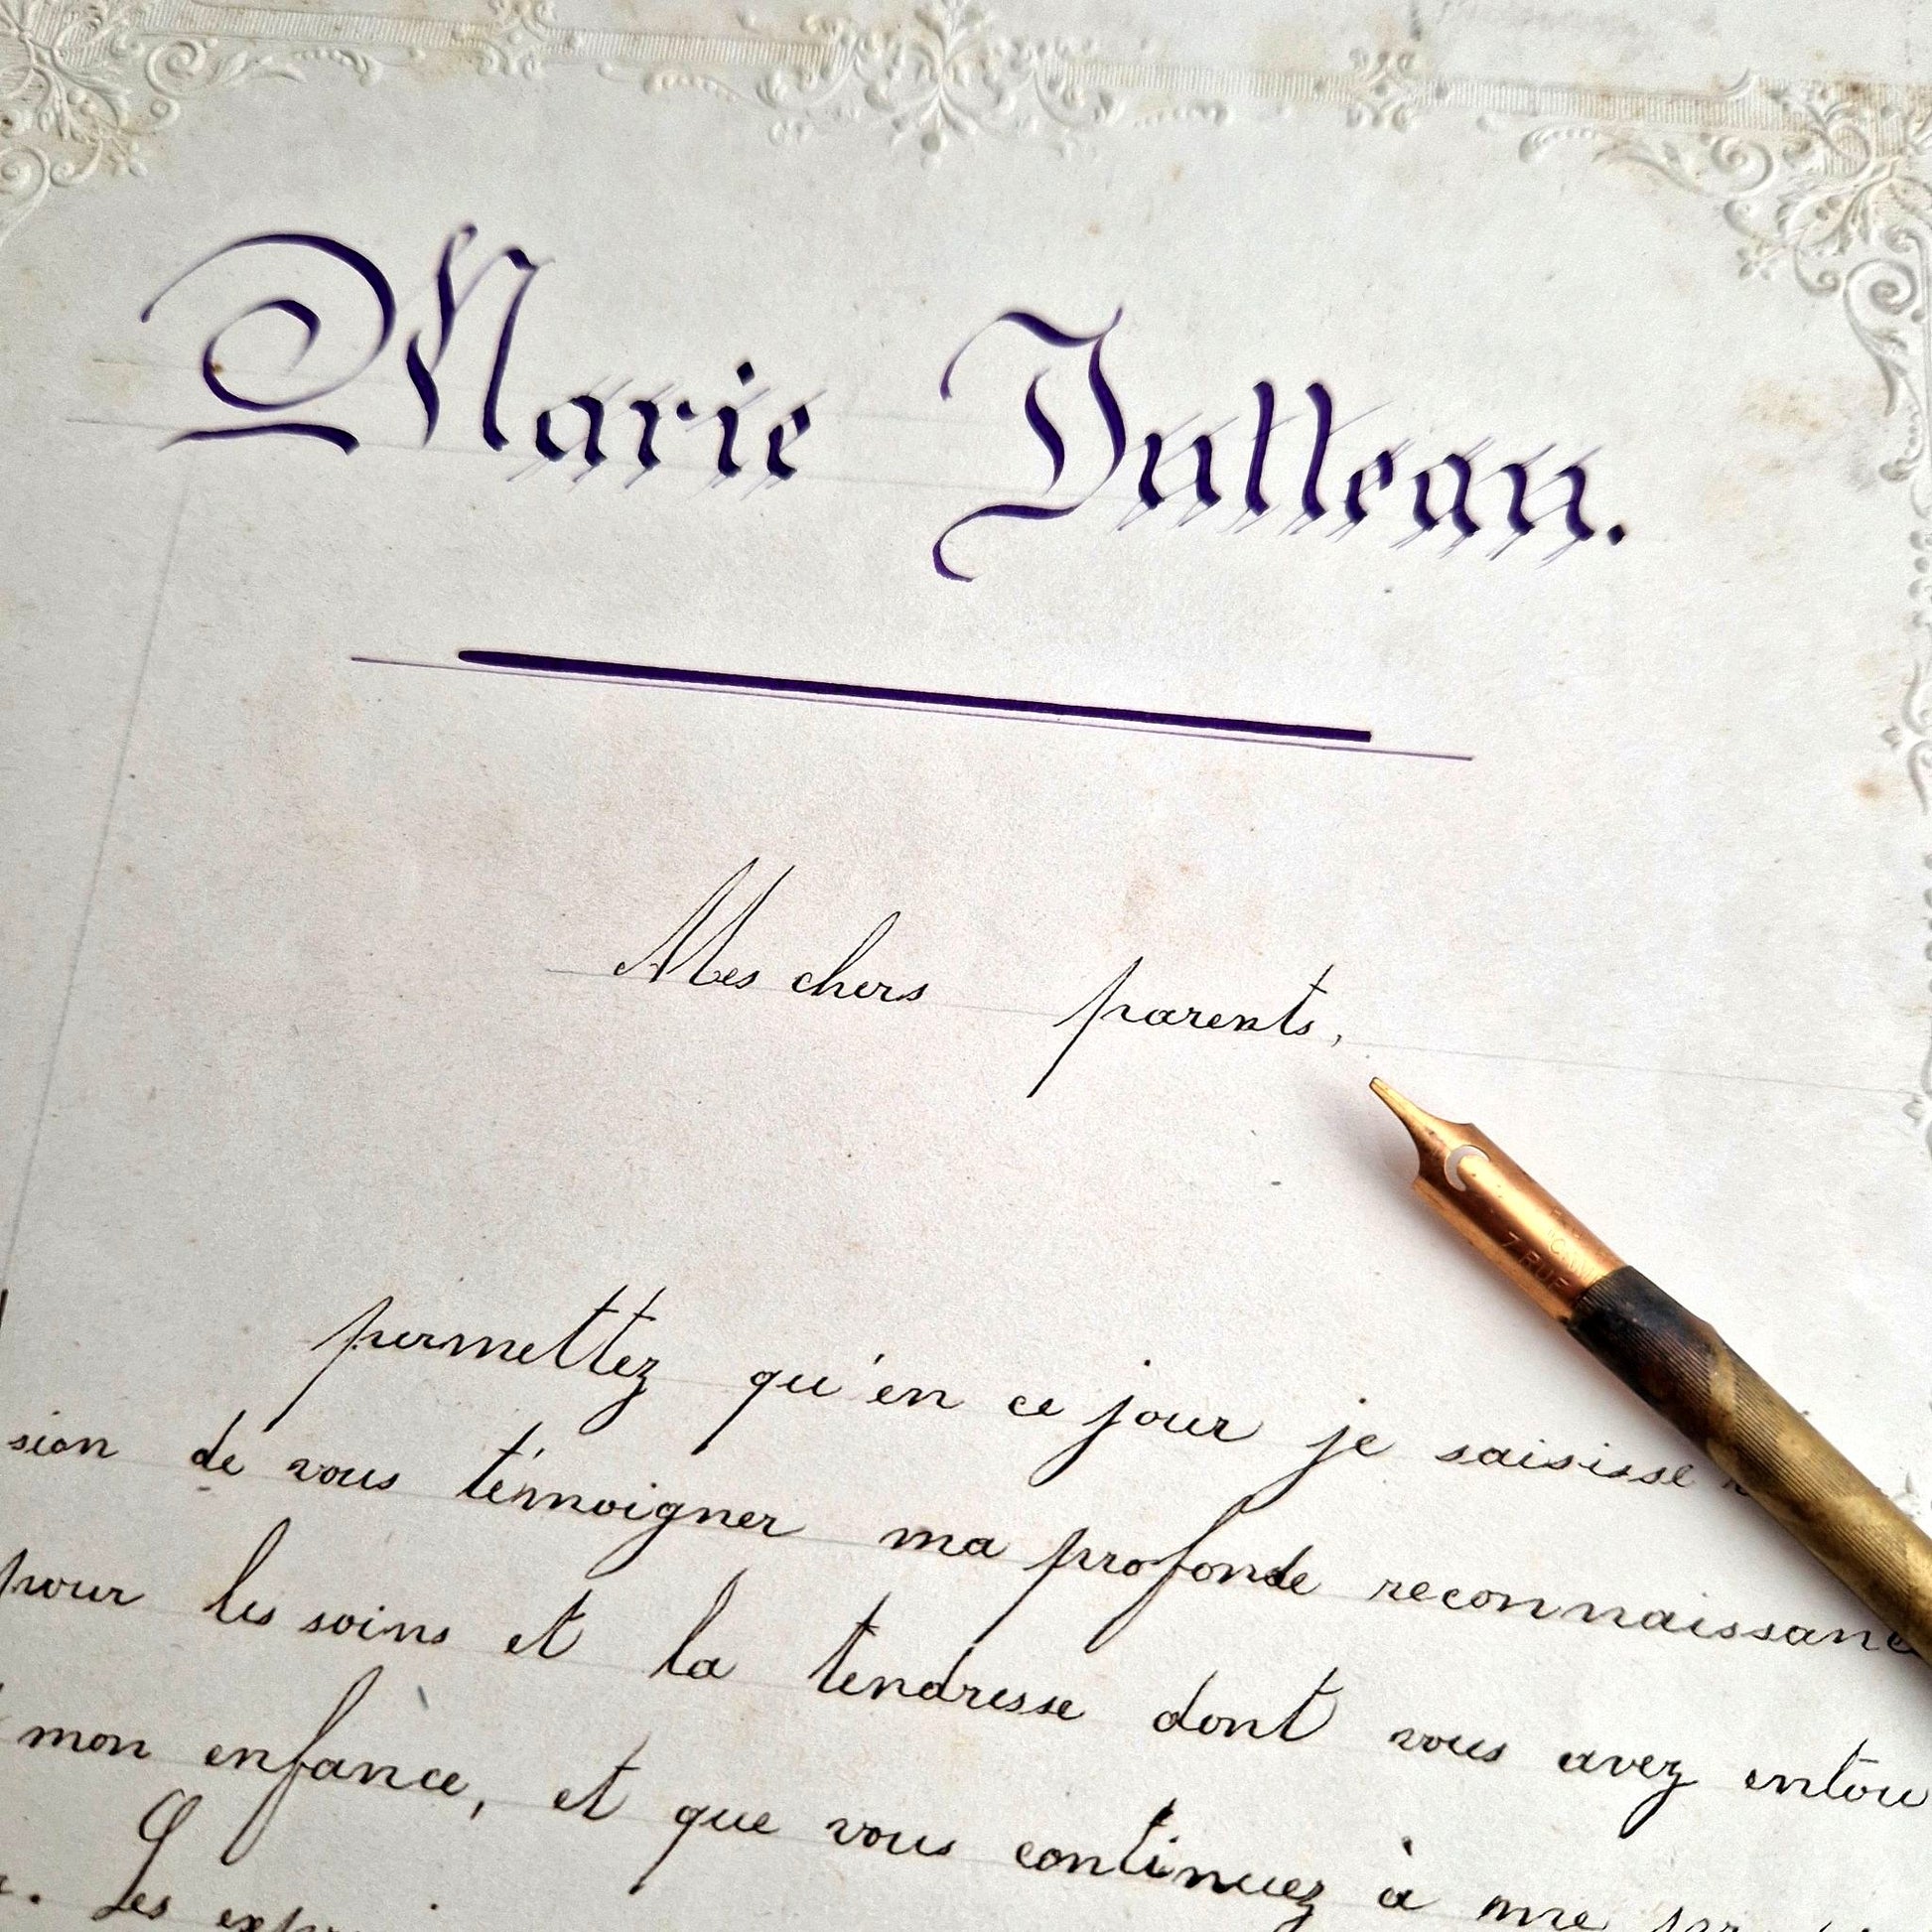 Marie Julleau.
Mes chers parents,
permettez qu'en ce jour je saisisse
sion de vous témoigner ma profonde reconnaissanc
pour les soins et la tendresse dont vous avez entou
mon enfance, et que vous continuez à me
. Les
7 RUE